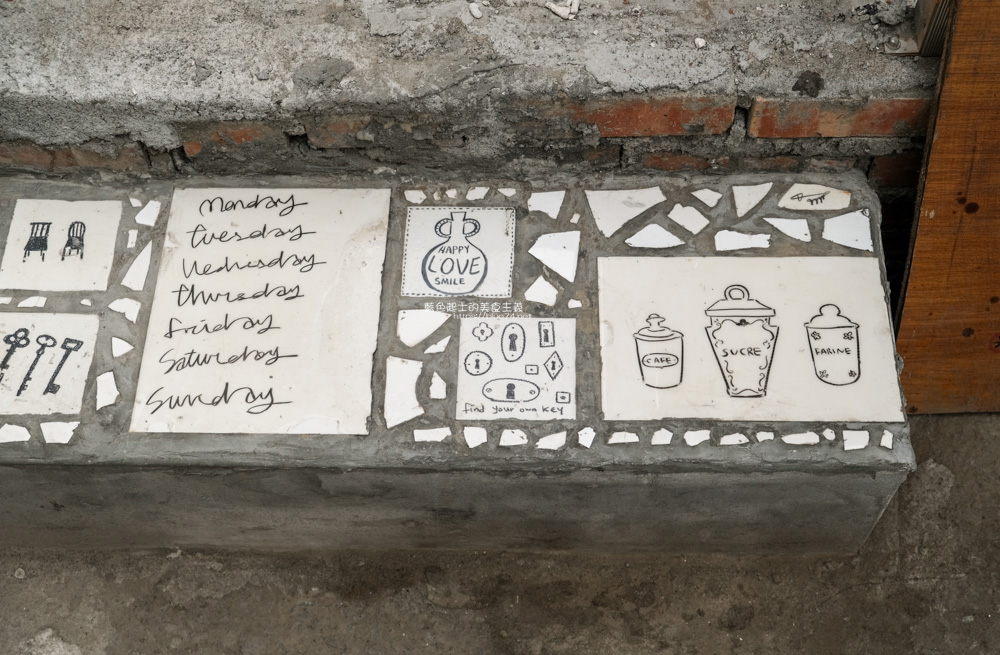 Monday
Tuesday
Wednesday
Thursday
Friday
Saturday
Sunday
HAPPY
LOVE
SMILE
藍色起士的美食主義
find your own key
CAFE
SUCRE
FARINE